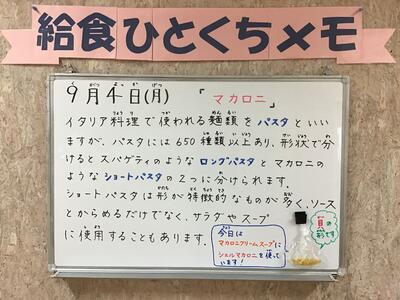 給食ひとくちメモ
9月4日(月)
「マカロニ」
イタリア料理で使われる麺類をパスタといい
ますが、パスタには650種類以上あり、形状で分
けるとスパゲティのようなロングパスタとマカロニの
ようなショートパスタの2つに分けられます。
ショートパスタは形が特徴的なものが多く、ソース
とからめるだけでなく、サラダやスープ
に使用することもあります。
今日は
マカロニクリームスープに
シェルマカロニを使って
います!
貝の
形です